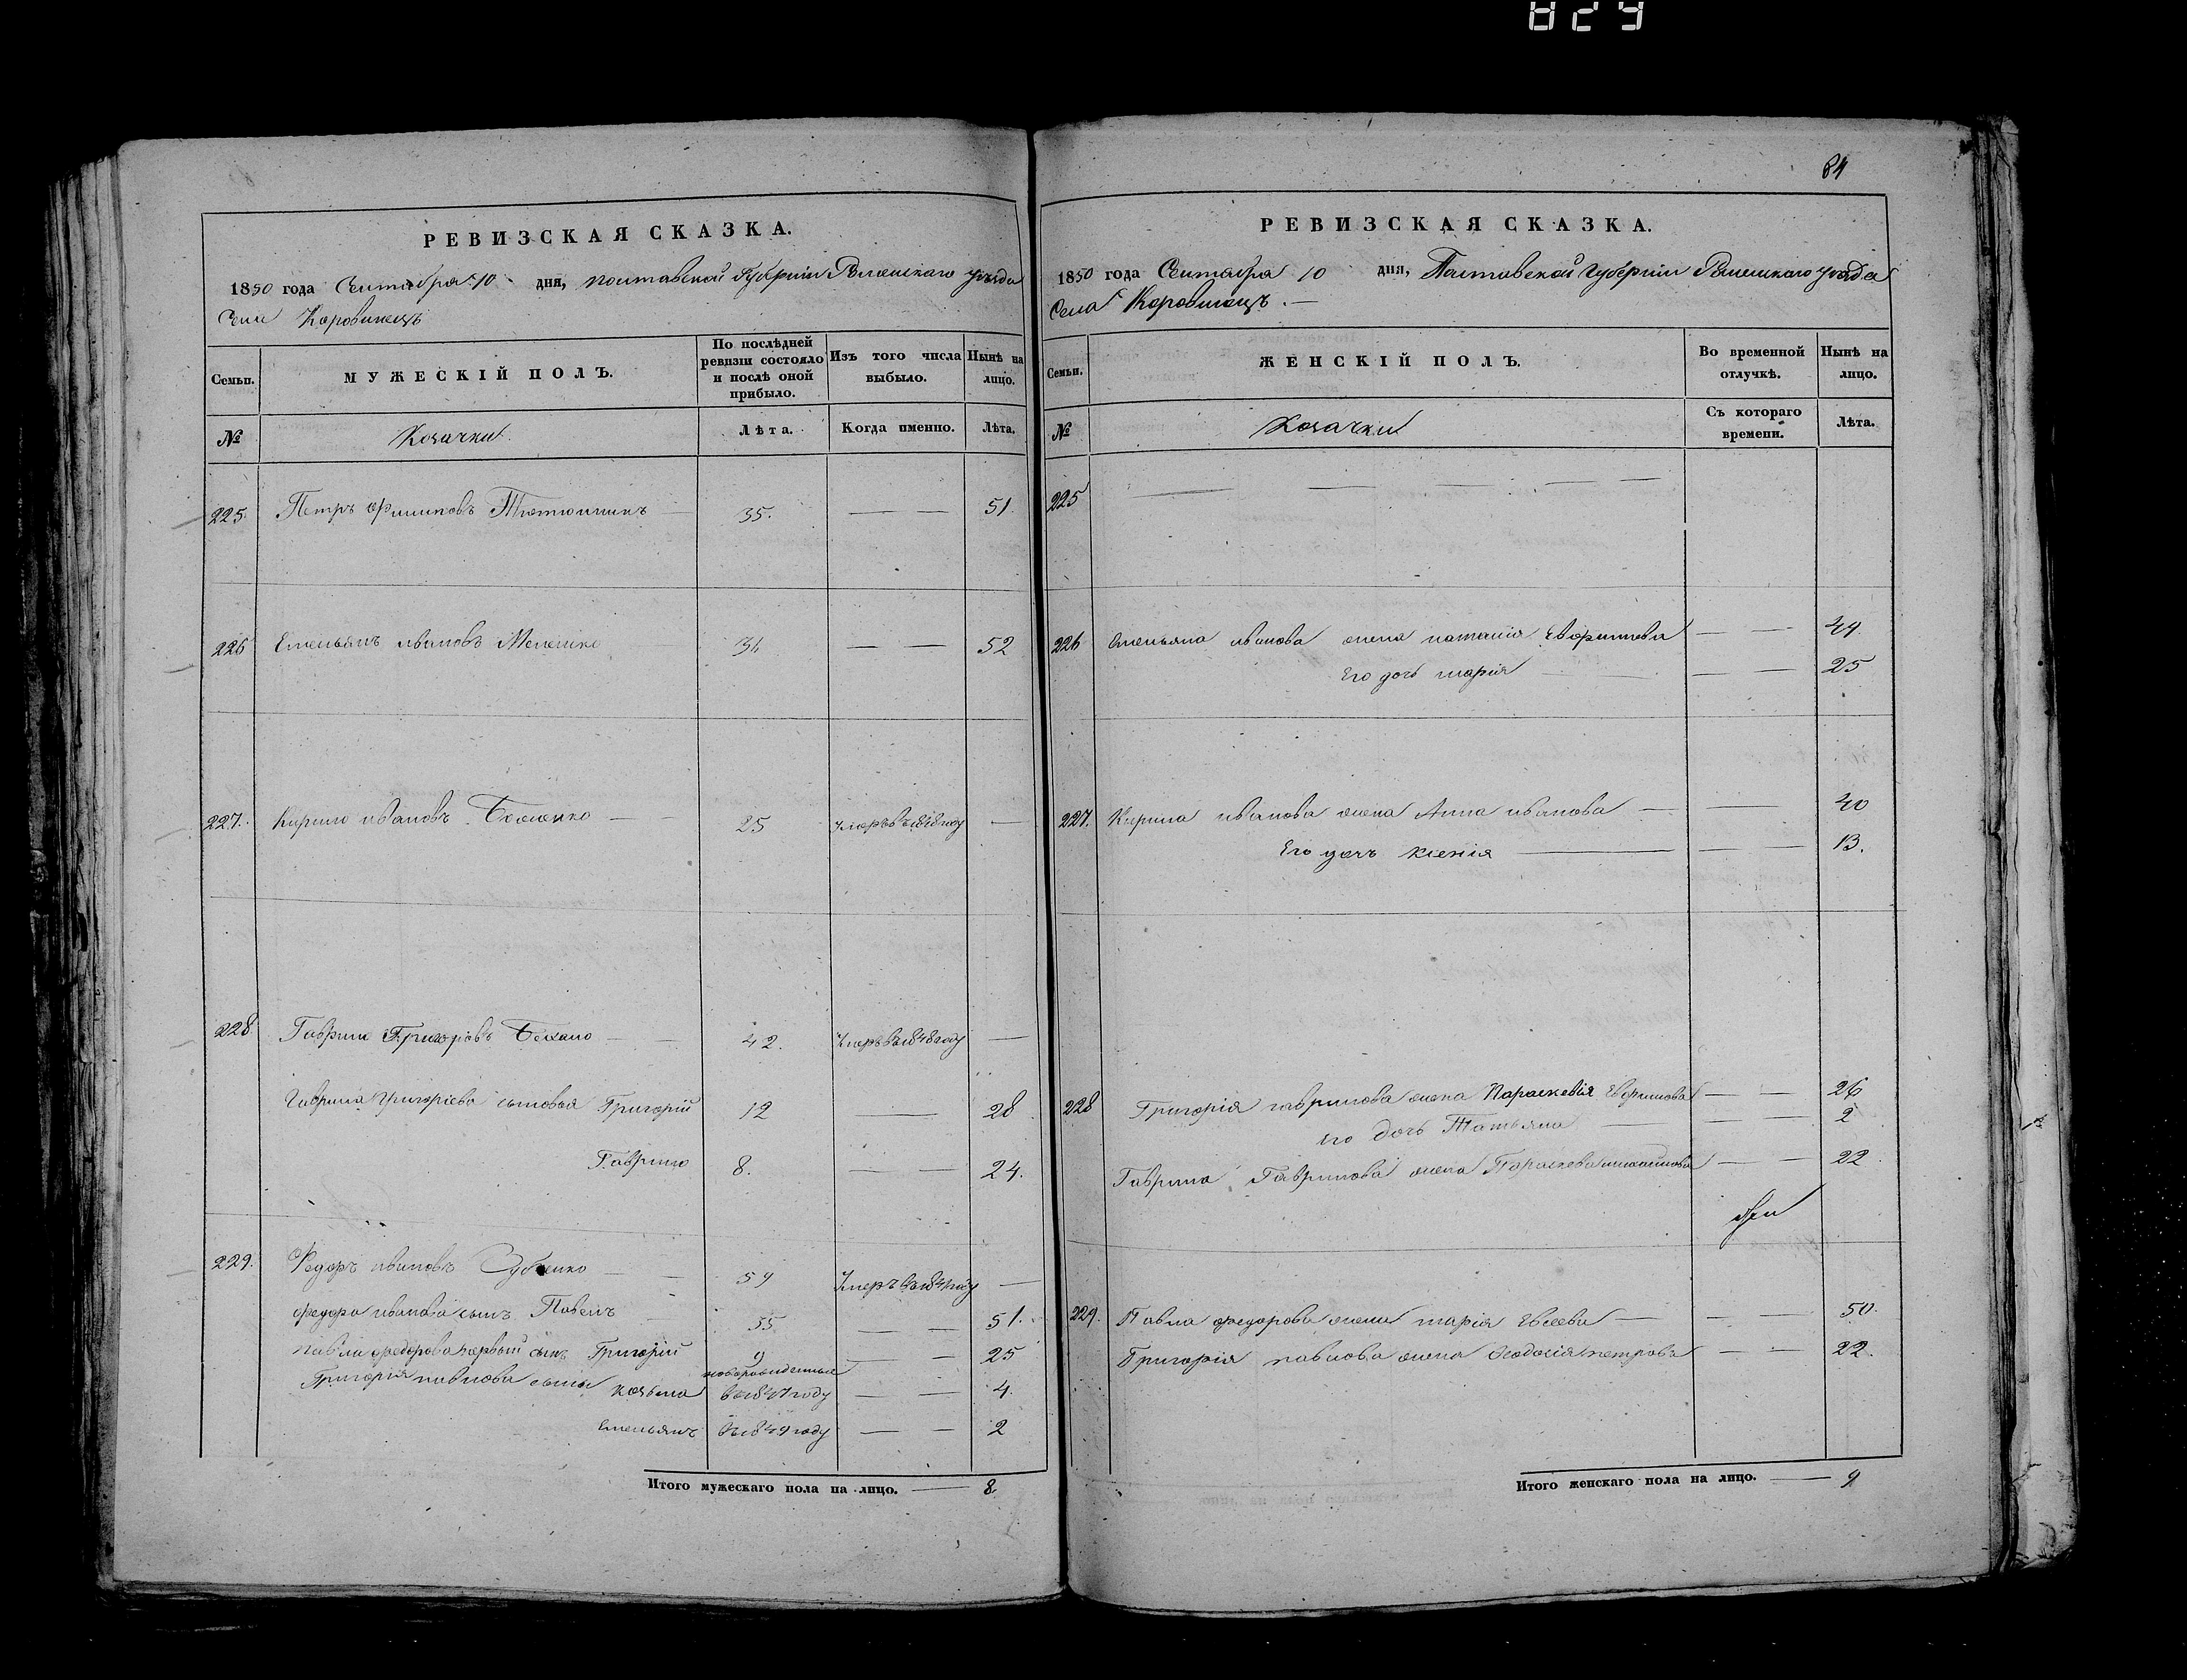 829
РЕВИЗСКАЯ СКАЗКА.
1850 года Сентября 10 дня, Полтавской Губернiи Роменскаго уѣзда
Села Коровинецъ
Семьи.
МУЖЕСКІЙ ПОЛЪ.
По послѣдней ревизіи состояло и послѣ оной прибыло.
Изъ того числа выбыло.
Нынѣ на лицо.
№
Козачки
Лѣта.
Когда именно.
Лѣта.
225. Петръ Филиповъ 35. 51.
226 Емельянъ ивановъ 36 52
227. Кирило ивановъ 25 умеръ въ году
228 Гаврило Григоровъ 42. Умеръ въ 1848 году
Гаврила Григорiева сыновья Григорій 12 28
Гаврило 8. 24.
229. Федоръ ивановъ 59 Умеръ въ году
федора иванова сынъ Павелъ 35 51.
павла федорова первый сынъ Григорій 9 25
новорожденные
Григорія павлова сыны козьма въ 1847 году 4.
Емельянъ въ 1849 году 2
Итого мужескаго пола на лицо. 8.
84
РЕВИЗСКАЯ СКАЗКА.
1850 года Сентября 10 дня, Полтавской Губернiи Роменскаго уѣзда
Села Коровинецъ.
Семьи.
ЖЕНСКІЙ ПОЛЪ.
Во временной отлучкѣ.
Нынѣ на лицо.
№
Козачки
Съ котораго времени.
Лѣта.
225
226 Емельяна иванова жена наталія 44.
Его дочь марія 25
227. Кирила иванова жена Анна иванова 40
Его дочь ксенія 13.
228 Григорія гаврилова жена Параскевія Евфимова 26
Его дочь Татьяна 2
Гаврила Гаврилова жена Параскева 22.
229. Павла федорова жена марія Евсеева 50.
Григорія павлова жена Феодосія петрова 22.
Итого женскаго пола на лицо. 9